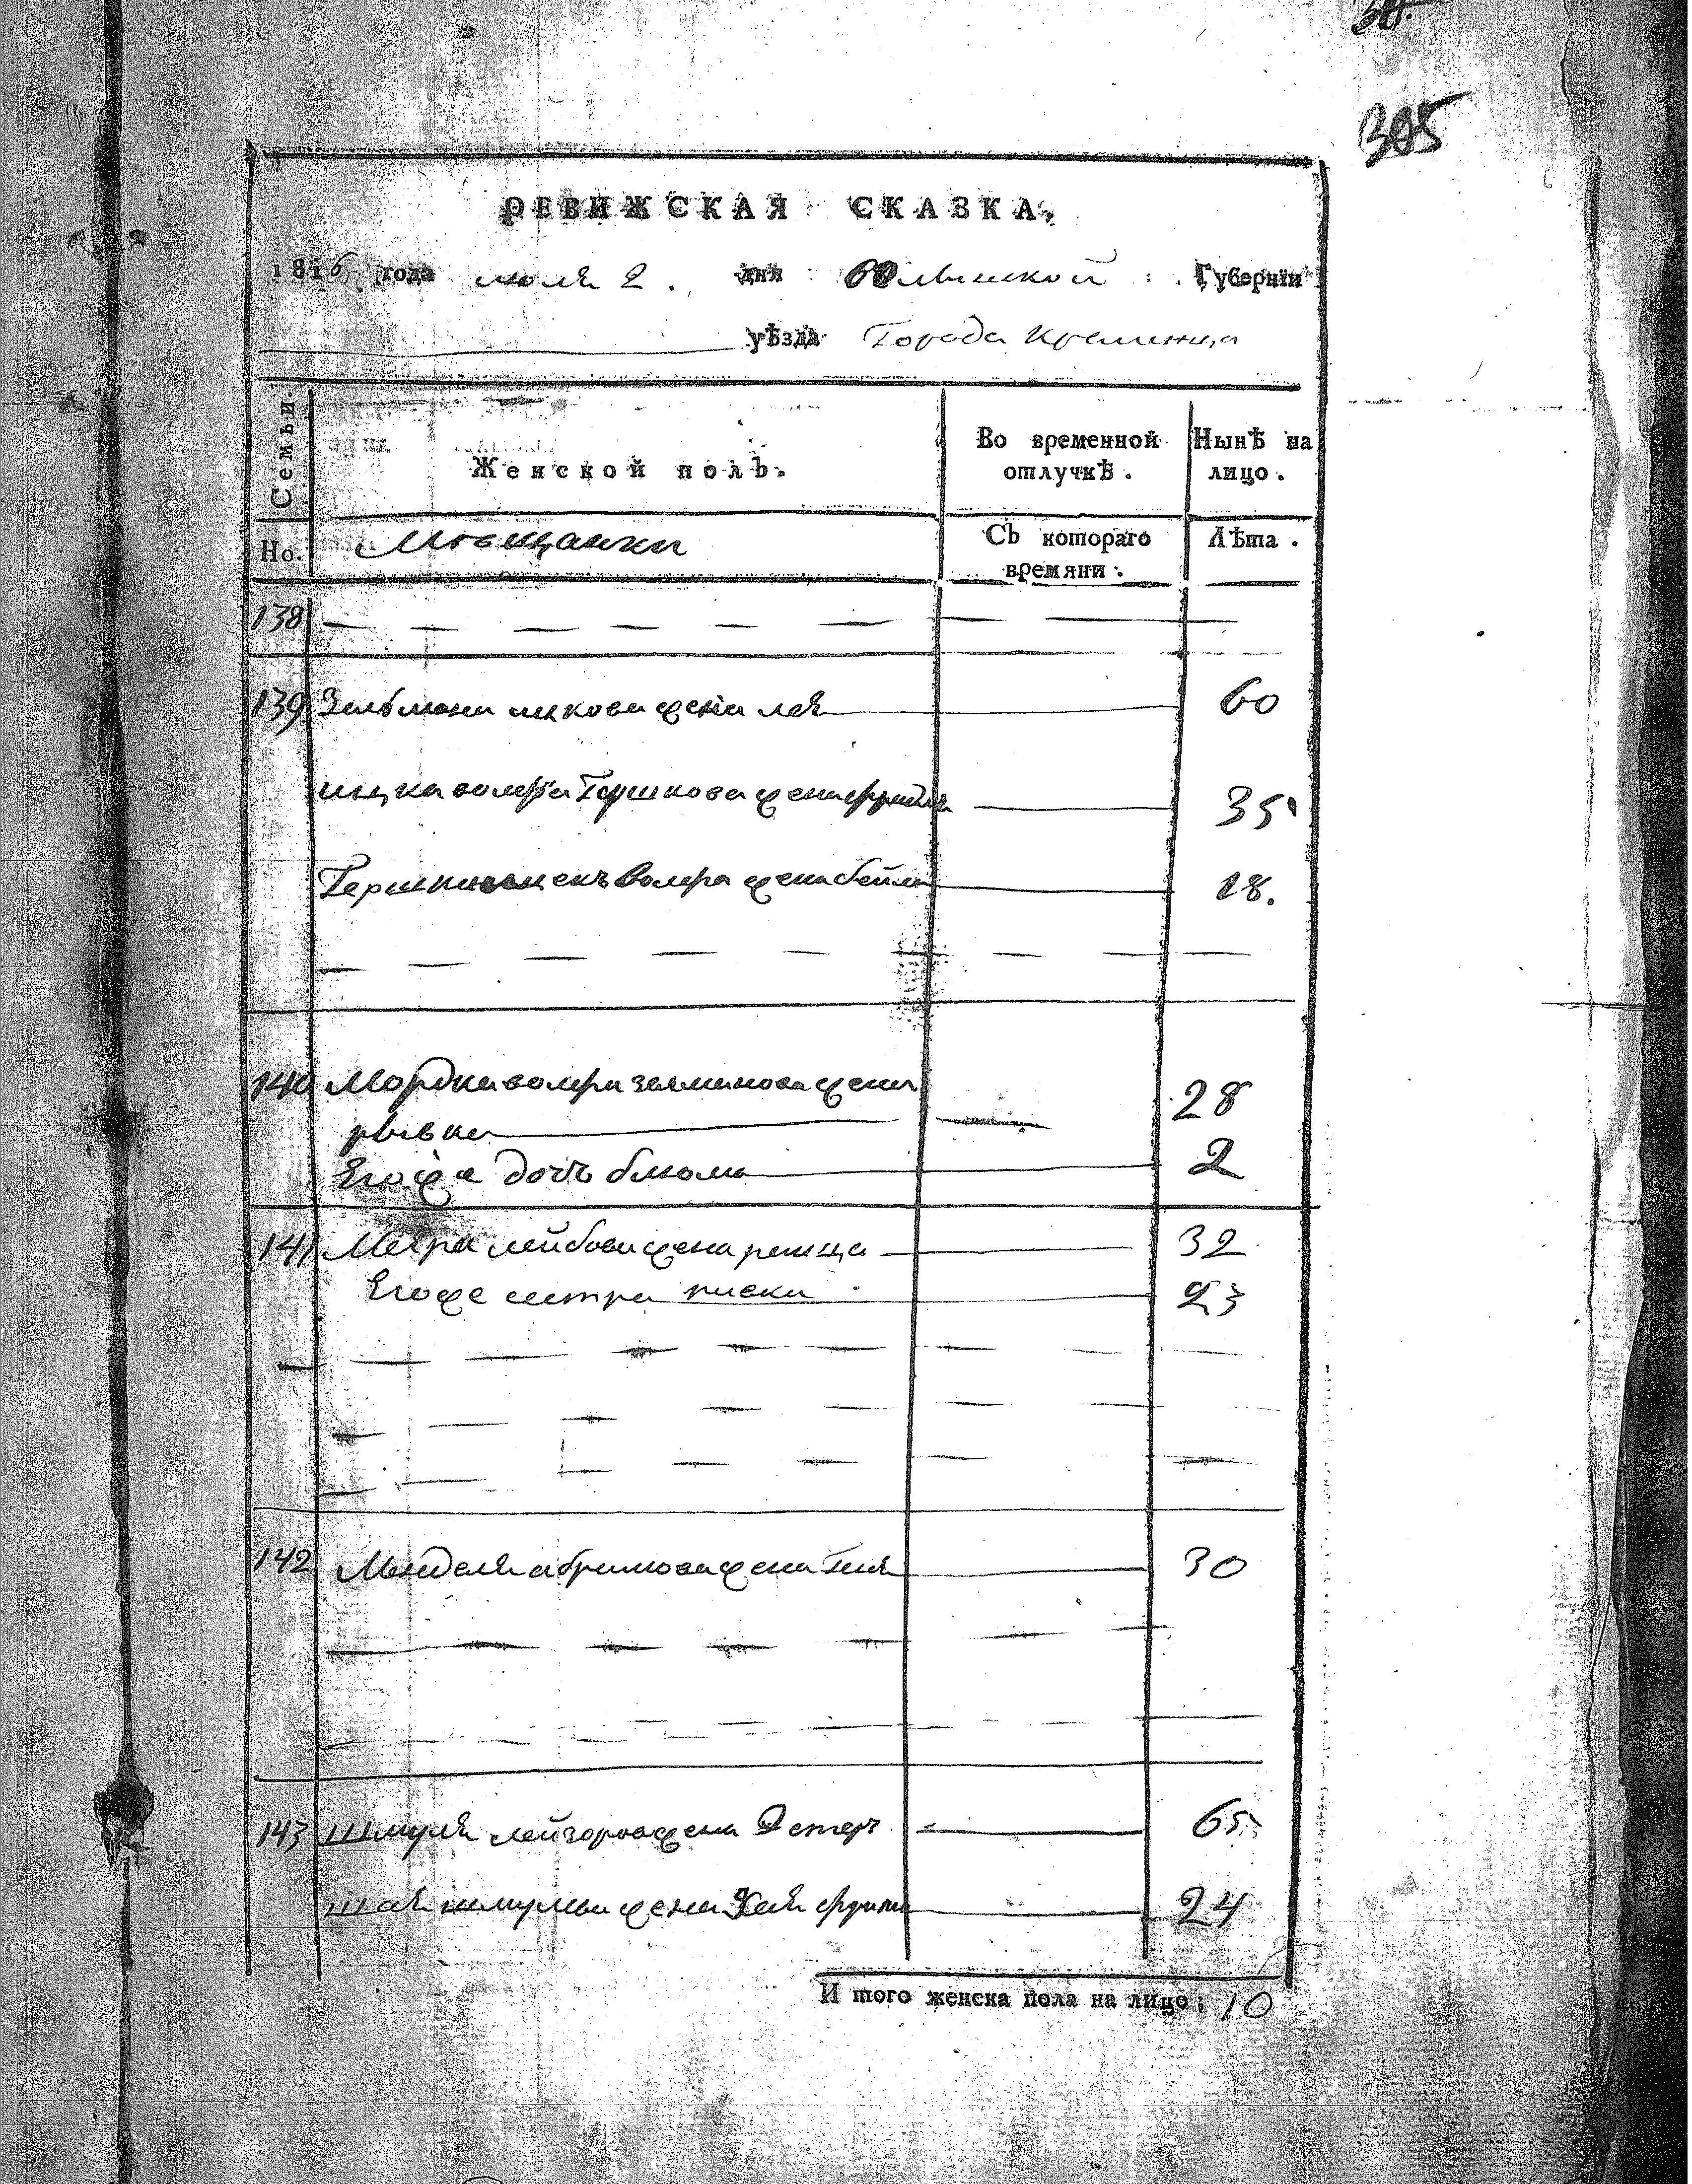 305
РЕВИЖСКАЯ СКАЗКА.
1816 года июля 2. дня Волынской Губерніи
уѣзда Города Кременца
Семьи.
Женской полъ.
Во временной отлучкѣ.
Нынѣ на лицо.
Но.
Мещанки
Съ котораго времяни.
Лѣта.
138
139 Зельмана ицкова жена лея 60
ицка волфа Гершкова жена 35
Гершка волфа жена бейла 18.
140 Мордка волфа залманова жена 28
рывка
Его же дочь блюма 2
141 Меера лейбова жена 32
Его же сестра 23
142 Менделя абрамова жена Геня 30
143 Шмуля лейзорова жена Эстер 65
шая шмулева жена Хая фрума 24
И того женска пола на лицо: 10